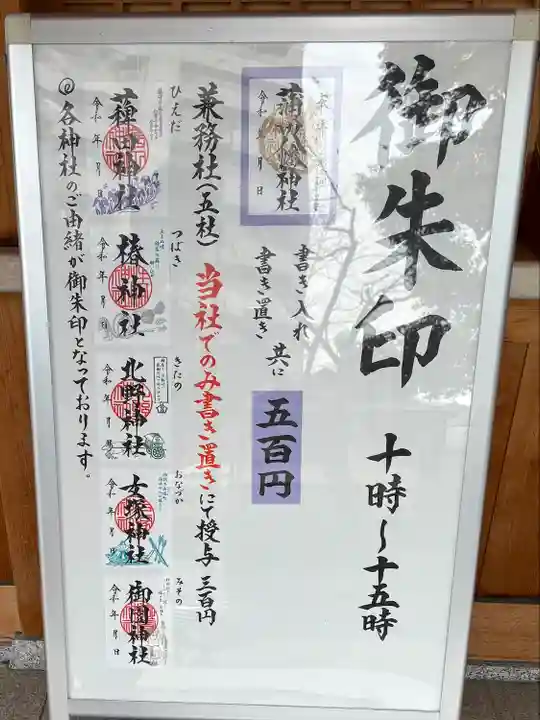 御朱印
十時~十五時
蒲田八幡神社
令和 年 月 日
書き入れ
書き置き 共に
五百円
兼務社(五社) 当社でのみ書き置きにて授与 三百円
ひえだ
薭田神社
令和 年 月 日
つばき
椿神社
令和 年 月 日
きたの
北野神社
令和 年 月 日
おなづか
女塚神社
令和 年 月 日
みその
御園神社
令和 年 月 日
◎各神社のご由緒が御朱印となっております。